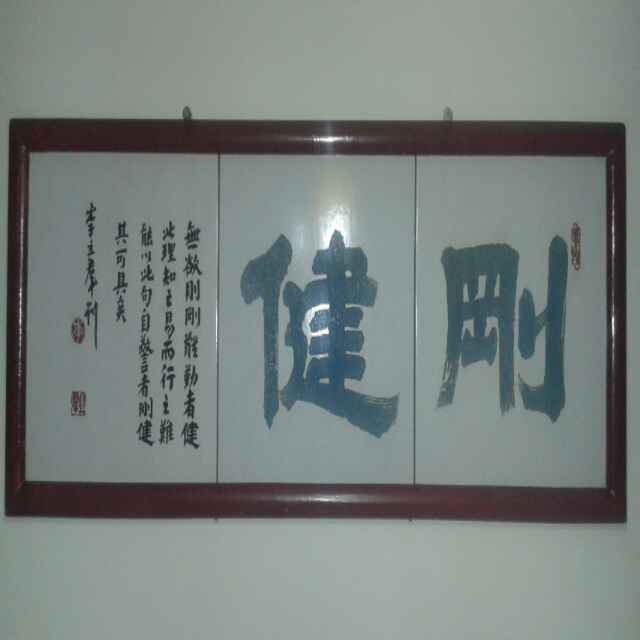 剛健
無欲則剛能勤者健
此理知之易而行之難
能以此句自警者剛健
其可具矣